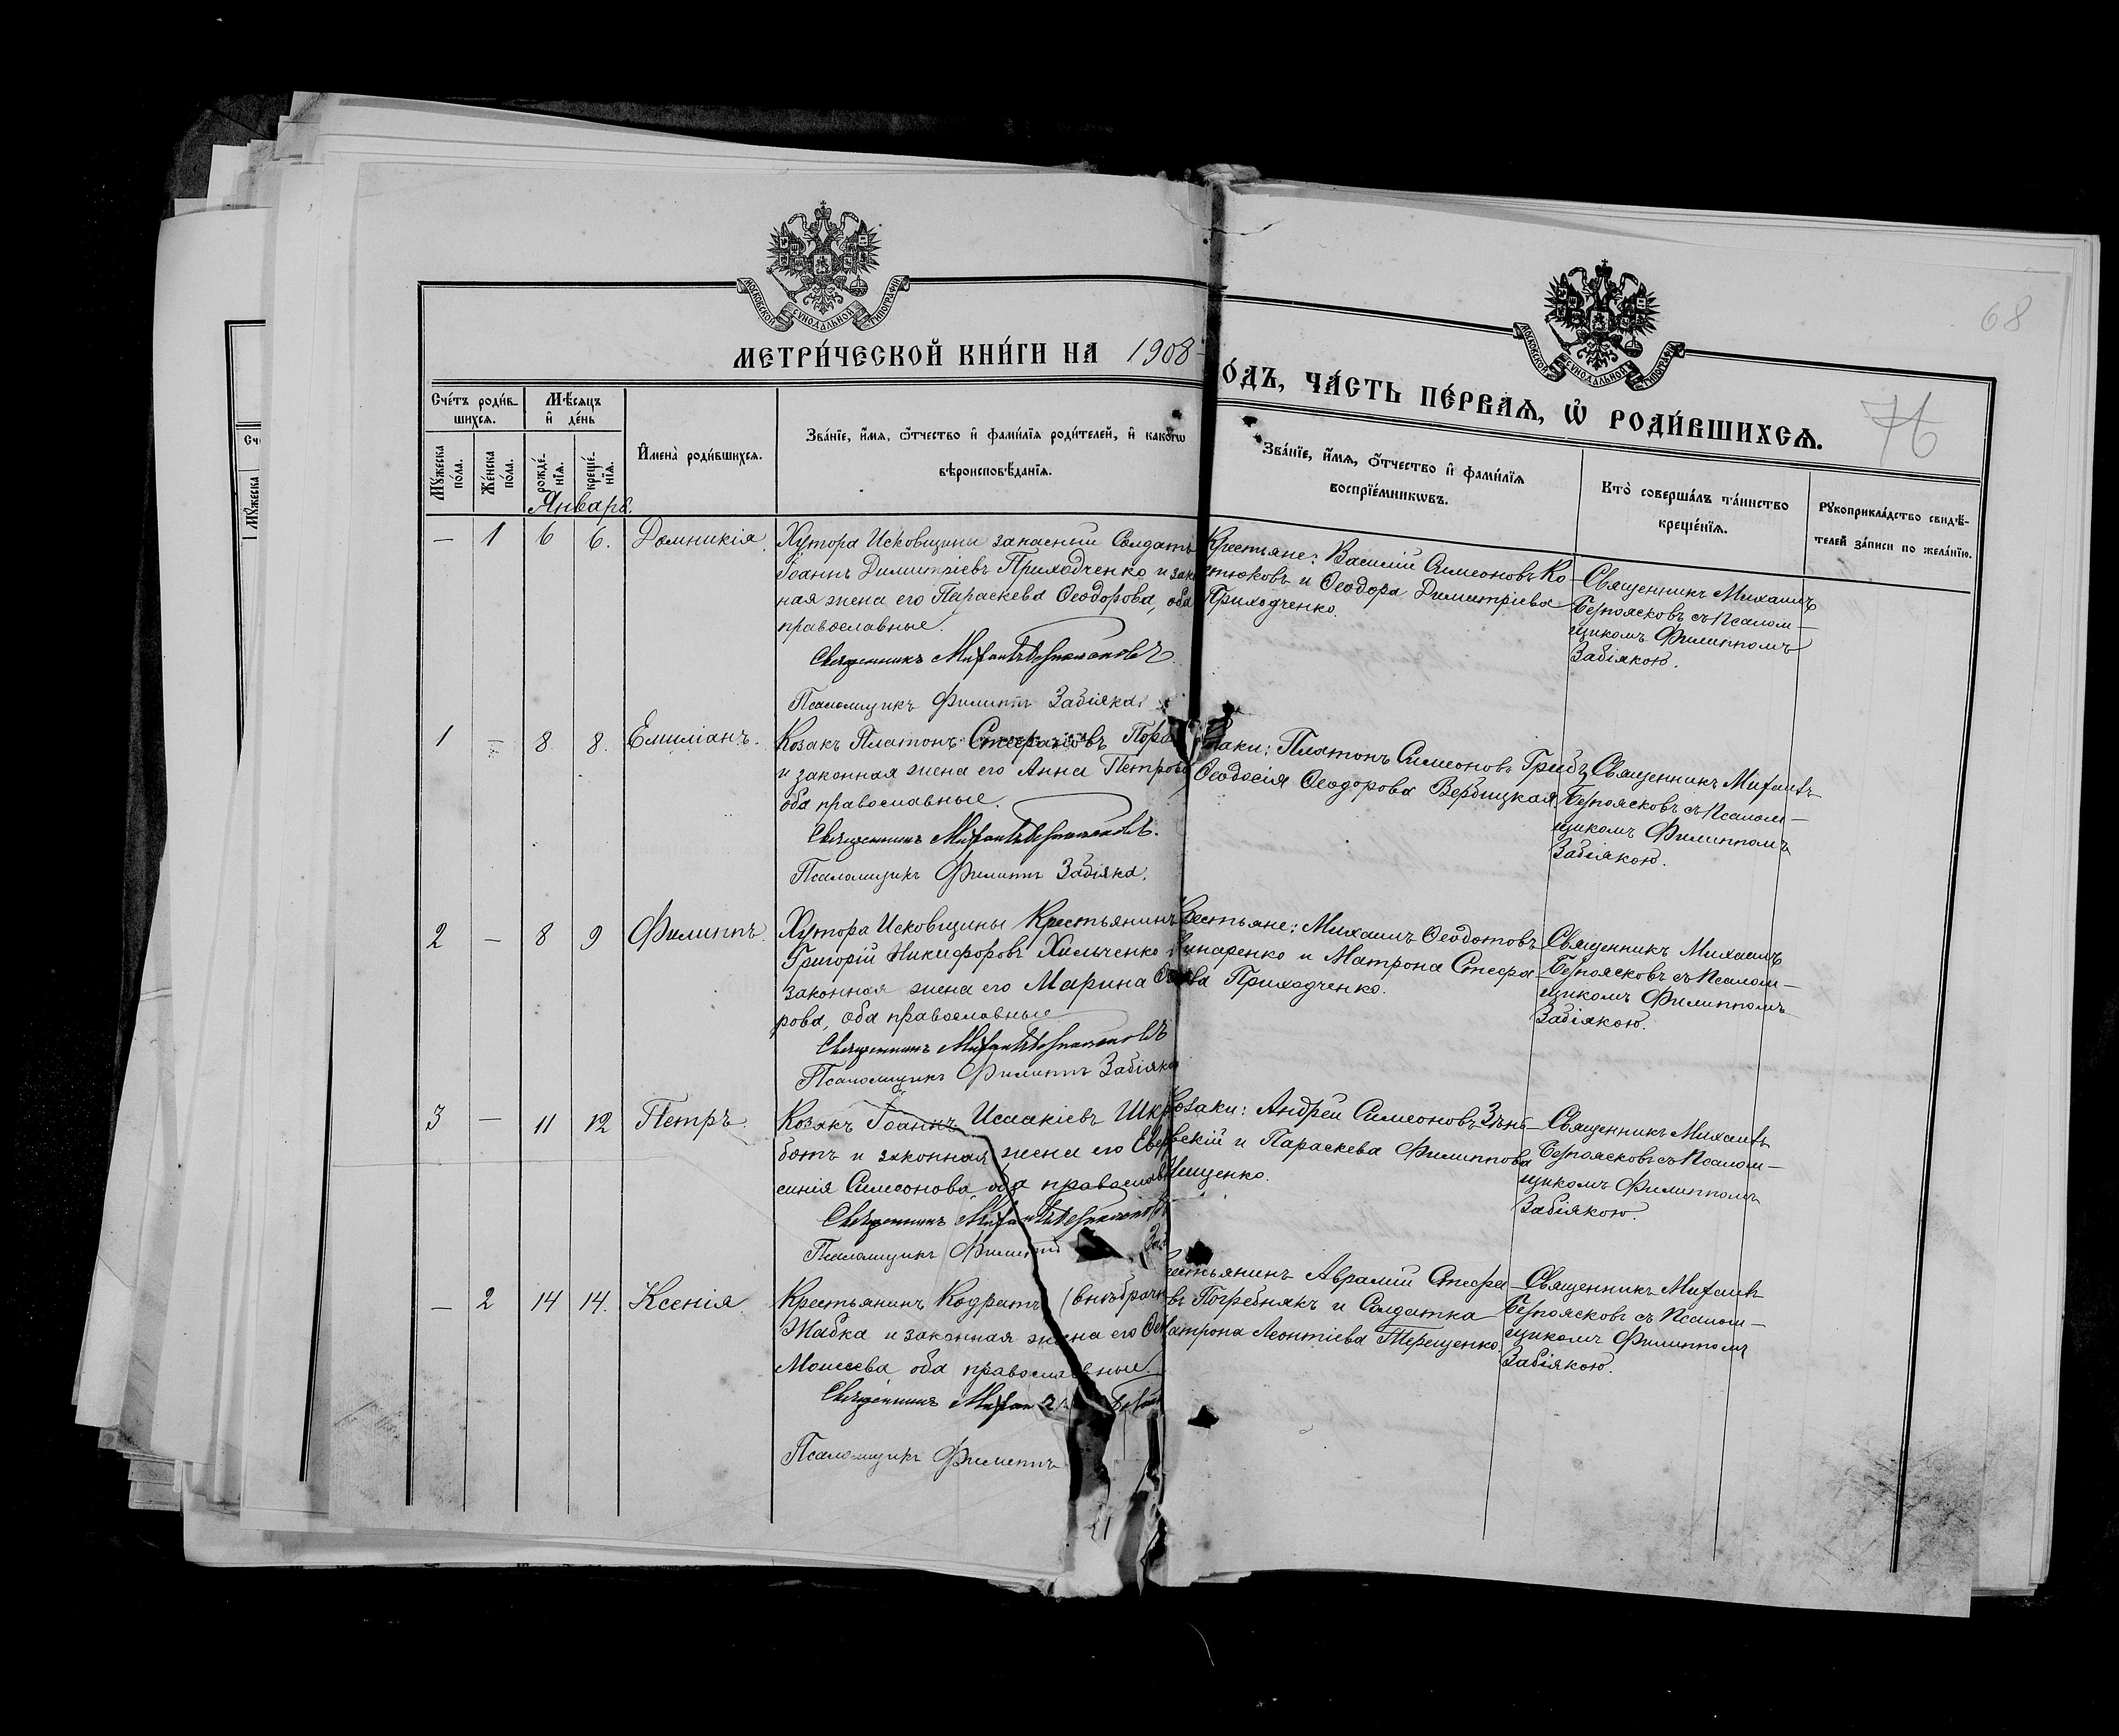 68
76
МОСКОВСКОЙ СУНОДАЛЬНОЙ ТИПОГРАФІИ
МОСКОВСКОЙ СУНОДАЛЬНОЙ ТИПОГРАФІИ
МЕТРИ́ЧЕСКОЙ КНИ́ГИ НА 1908
ОДЪ, ЧА́СТЬ ПЕ́РВАѦ, Ѡ РОДИ́ВШИХСѦ.
Сче́тъ роди́в-
шихсѧ.
Мѣ́сѧцъ
и҆ де́нь
Мꙋжеска по́ла.
Же́нска по́ла.
рожде́-нїѧ.
креще́-нїѧ.
И҆мена̀ роди́вшихсѧ.
Зва́нїе, и҆́мѧ, ѻ҆́тчество и҆ фами́лїѧ роди́телей, и҆ какогѡ
вѣроисповѣ́данїѧ.
Зва́нїе, и҆́мѧ, ѻ҆́тчество и҆ фами́лїѧ
воспрїе́мникѡвъ.
Кто̀ соверша́лъ та́инство
креще́нїѧ.
Рꙋкоприкла́дство свидѣ́-
телей за́писи по жела́нїю.
Январь.
— 1 6 6. Домникія.
Хутора Исковщины запасный Солдатъ
Іоаннъ Димитріевъ Приходченко и зако
ная жена его Параскева Ѳеодорова, оба
православные.
Священникъ Михаилъ Безпоясковъ
Псаломщикъ Филиппъ Забіяка
Крестьяне: Василій Симеоновъ Ко-
стюковъ и Ѳеодора Димитріева
Приходченко.
Священникъ Михаилъ
Безпоясковъ съ Псалом-
щикомъ Филиппомъ
Забіякою.
1 — 8 8. Емиліанъ.
Козакъ Платонъ Стефановъ
и законная жена его Анна Петрова
оба православные.
Священникъ Михаилъ Безпоясковъ.
Псаломщикъ Филиппъ Забіяка.
заки: Платонъ Симеоновъ Грибъ
Ѳеодосія Ѳеодорова Вербицкая.
Священникъ Михаилъ
Безпоясковъ съ Псалом-
щикомъ Филиппомъ
Забіякою.
2 — 8 9 Филиппъ.
Хутора Исковщины Крестьянинъ
Григорій Никифоровъ Хильченко
законная жена его Марина
рова, оба православные
Священникъ Михаилъ Безпоясковъ
Псаломщикъ Филиппъ Забіяка
рестьяне: Михаилъ Ѳеодотовъ
и Матрона Стефа-
ва Приходченко.
Священникъ Михаилъ
Безпоясковъ съ Псалом-
щикомъ Филиппомъ
Забіякою.
3 — 11 12 Петръ
Козакъ Іоаннъ Исаакіевъ Шкр
ботъ и законная жена его Евф
синія Симеонова, оба православн
Священникъ Михаилъ Безпоясковъ
Псаломщикъ Филиппъ За
Козаки: Андрей Симеоновъ
и Параскева Филиппова
Священникъ Михаилъ
Безпоясковъ съ Псалом-
щикомъ Филиппомъ
Забіякою.
— 2 14 14. Ксенія.
Крестьянинъ Кодратъ (внѣбрачн
Жабка и законная жена его
Моисеева оба православные.
Священникъ Михаилъ
Псаломщикъ Филиппъ
естьянинъ Аврамій Стефа-
въ Погребнякъ и Солдатка
атрона Леонтіева Терещенко.
Священникъ Михаилъ
Безпоясковъ съ Псалом-
щикомъ Филиппомъ
Забіякою.